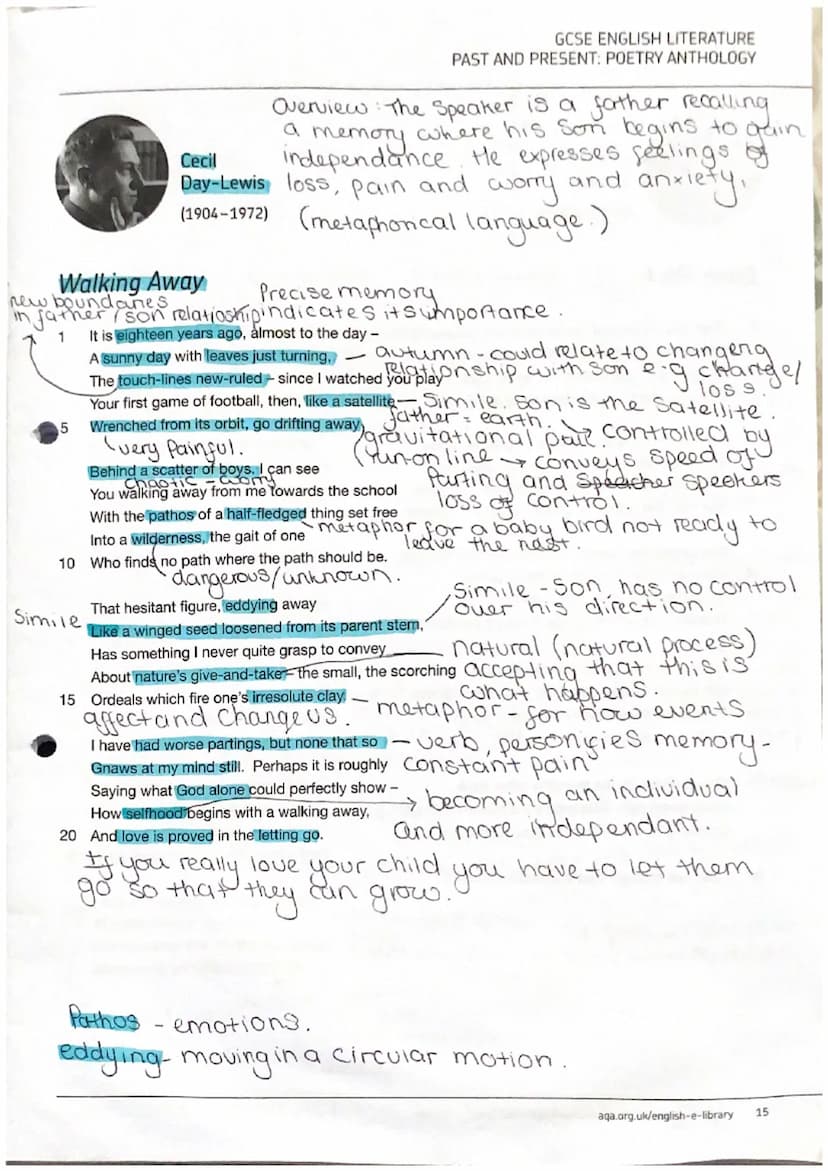 GCSE ENGLISH LITERATURE
PAST AND PRESENT: POETRY ANTHOLOGY
Overview: The Speaker is a father recalling
a memory where his son begins to gain
independance. He expresses feelings of
loss, pain and worry and anxiety,
(metaphorical language.)
Cecil
Day-Lewis
(1904–1972)
Walking Away
new boundaries
in father/son relatioship
Precise memory
indicates its importance.
1 It is eighteen years ago, almost to the day –
A sunny day with leaves just turning,
autumn - could relate to changeing
relationship with son e.g change/
loss.
The touch-lines new-ruled – since I watched you play
Your first game of football, then, like a satellite
Simile. Son is the Satellite.
father = earth.
5 Wrenched from its orbit, go drifting away
very Painful.
gravitational pull. controlled by
(run-on line → conveys speed of
Parting and speakers
loss of control.
Behind a scatter of boys. I can see
Chaotic - worry
You walking away from me towards the school
With the pathos of a half-fledged thing set free
metaphor for a baby bird not ready to
leave the nest.
Into a wilderness, the gait of one
10 Who finds no path where the path should be.
dangerous/unknown.
That hesitant figure, eddying away
Simile - Son has no control
over his direction.
Simile
Like a winged seed loosened from its parent stem,
Has something I never quite grasp to convey
natural (natural process)
accepting that this is
what happens.
About nature's give-and-take – the small, the scorching
15 Ordeals which fire one's irresolute clay.
metaphor - for how events
affect and change us.
I have had worse partings, but none that so
verb, personifies memory -
constant pain
Gnaws at my mind still. Perhaps it is roughly
Saying what God alone could perfectly show –
How selfhood begins with a walking away,
becoming an individual
and more independant.
20 And love is proved in the letting go.
If you really love your child you have to let them
go so that they can grow.
Pathos - emotions.
eddying - moving in a circular motion.
aqa.org.uk/english-e-library 15